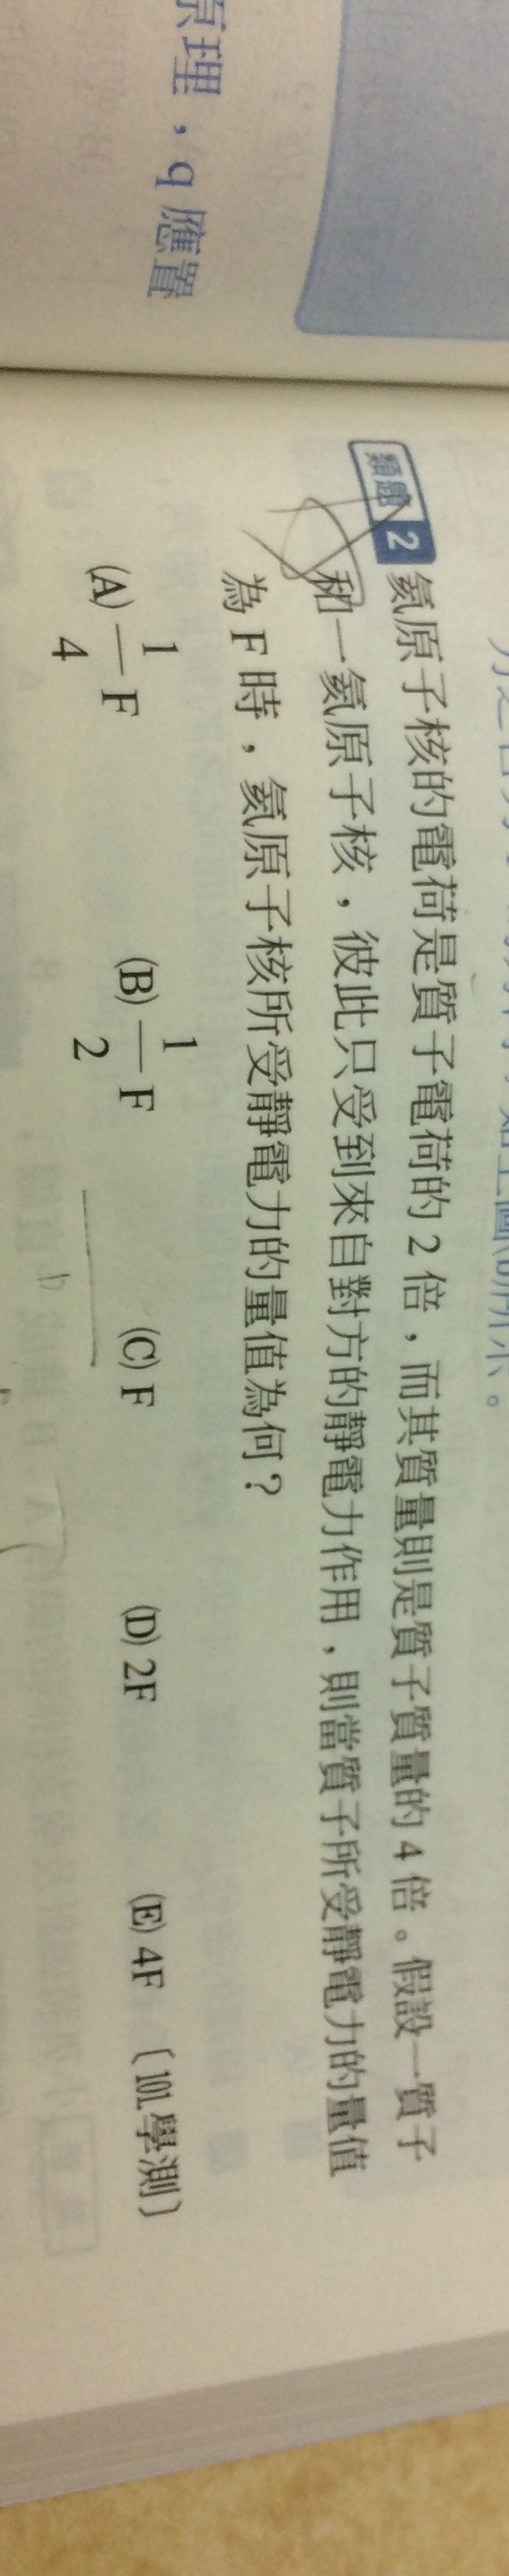 原理，q應置
類題 2 氦原子核的電荷是質子電荷的 2 倍，而其質量則是質子質量的 4 倍。假設一質子
和一氦原子核，彼此只受到來自對方的靜電力作用，則當質子所受靜電力的量值
為 F 時，氦原子核所受靜電力的量值為何？
(A) 1/4 F (B) 1/2 F (C) F (D) 2F (E) 4F 〔101.學測〕